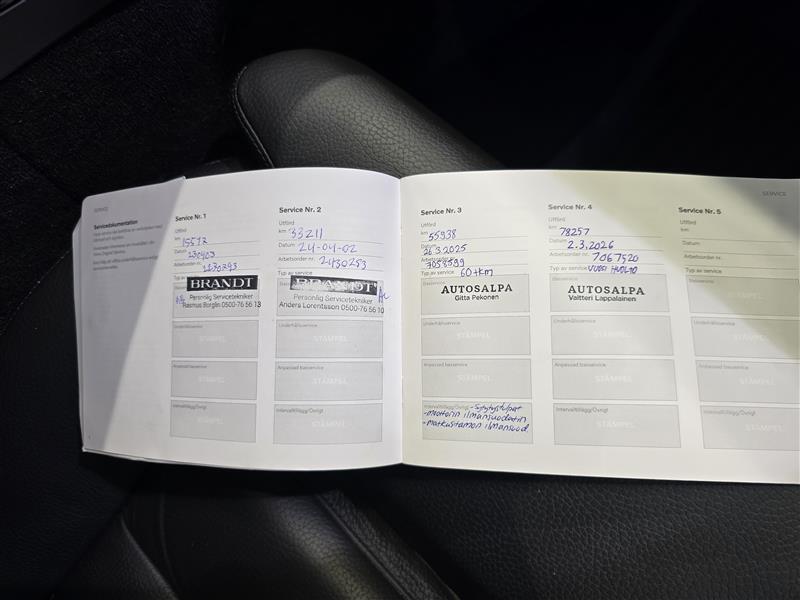 SERVICE
Servicedokumentation
Service Nr. 1
Utförd
km
15572
Datum
230403
Arbetsorder nr.
1230243
Typ av service
BRANDT
Personlig Servicetekniker
Rasmus Borglin 0500-76 56 13
Underhållsservice
STÄMPEL
Anpassad basservice
STÄMPEL
Intervalltillägg/Övrigt
STÄMPEL
Service Nr. 2
Utförd
km 33211
Datum 24-04-02
Arbetsorder nr. 2430253
Typ av service
BRANDT
Personlig Servicetekniker
Anders Lorentsson 0500-76 56 10
Underhållsservice
STÄMPEL
Anpassad basservice
STÄMPEL
Intervalltillägg/Övrigt
STÄMPEL
Service Nr. 3
Utförd
km 55938
Datum 26.3.2025
Arbetsorder nr. 7058599
Typ av service 60tkm
AUTOSALPA
Gitta Pekonen
Underhållsservice
STÄMPEL
Anpassad basservice
STÄMPEL
Intervalltillägg/Övrigt - Sytytystulpat
- moottorin ilmansuodatin
- matkustamon ilmansuod
SERVICE
Service Nr. 4
Utförd
km 78257
Datum 2.3.2026
Arbetsorder nr. 7067520
Typ av service VUOSI HUOLTO
Basservice
AUTOSALPA
Valtteri Lappalainen
Underhållsservice
STÄMPEL
Anpassad basservice
STÄMPEL
Intervalltillägg/Övrigt
STÄMPEL
Service Nr. 5
Utförd
km
Datum
Arbetsorder nr.
Typ av service
Basservice
STÄMPEL
Underhållsservice
STÄMPEL
Anpassad basservice
STÄMPEL
Intervalltillägg/Övrigt
STÄMPEL